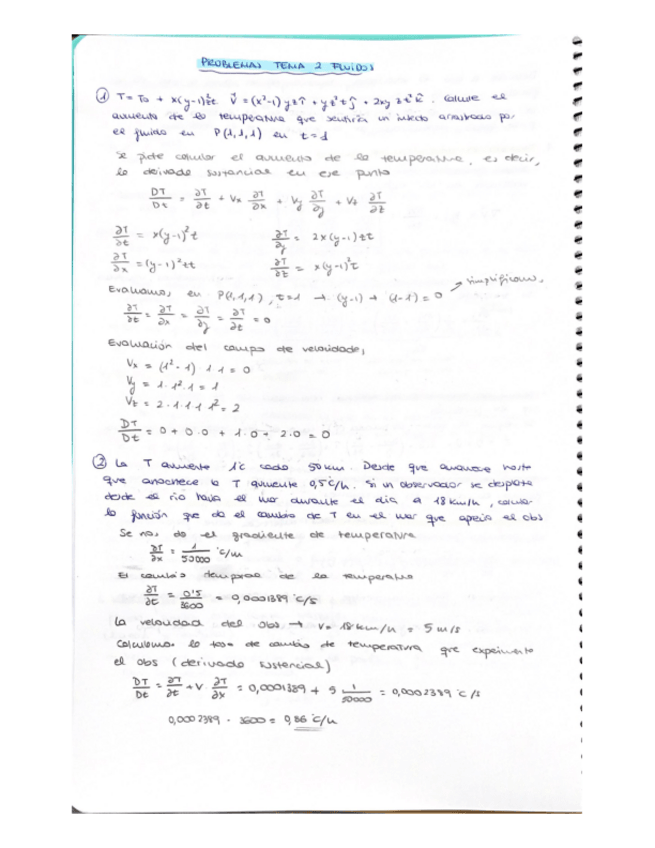 PROBLEMAS TEMA 2 FLUIDOS
① T= T₀ + x(y-1)²zt V⃗ = (x²-1) yz î + yz²t ĵ + 2xy zt² k̂ . Calcule el
aumento de la temperatura que sentiría un insecto arrastrado por
el fluido en P(1,1,1) en t=1
Se pide calcular el aumento de la temperatura, es decir,
la derivada sustancial en ese punto
DT/Dt = ∂T/∂t + Vx ∂T/∂x + Vy ∂T/∂y + Vz ∂T/∂z
∂T/∂t = x(y-1)²z ∂T/∂y = 2x(y-1)zt
∂T/∂x = (y-1)²zt ∂T/∂z = x(y-1)²t
Evaluamos en P(1,1,1), t=1 → (y-1) → (1-1) = 0 → simplificamos
∂T/∂t = ∂T/∂x = ∂T/∂y = ∂T/∂z = 0
Evaluación del campo de velocidades
Vx = (1²-1) 1 1 = 0
Vy = 1·1²·1 = 1
Vz = 2·1·1 1 1² = 2
DT/Dt = 0 + 0·0 + 1·0 + 2·0 = 0
② La T aumenta 1°C cada 50 km. Desde que amanece hasta
que anochece la T aumenta 0,5°C/h. Si un observador se desplaza
desde el río hasta el mar durante el día a 18 km/h, calcular
la función que da el cambio de T en el mar que aprecia el obs
Se nos da el gradiente de temperatura
∂T/∂x = 1/50000 °C/m
El cambio temporal de la temperatura
∂T/∂t = 0'5/3600 = 0,0001389 °C/s
La velocidad del Obs → V= 18 km/h = 5 m/s
Calculamos la tasa de cambio de temperatura que experimenta
el obs (derivada sustancial)
DT/Dt = ∂T/∂t + V · ∂T/∂x = 0,0001389 + 5 1/50000 = 0,0002389 °C/s
0,0002389 · 3600 = 0,86 °C/h